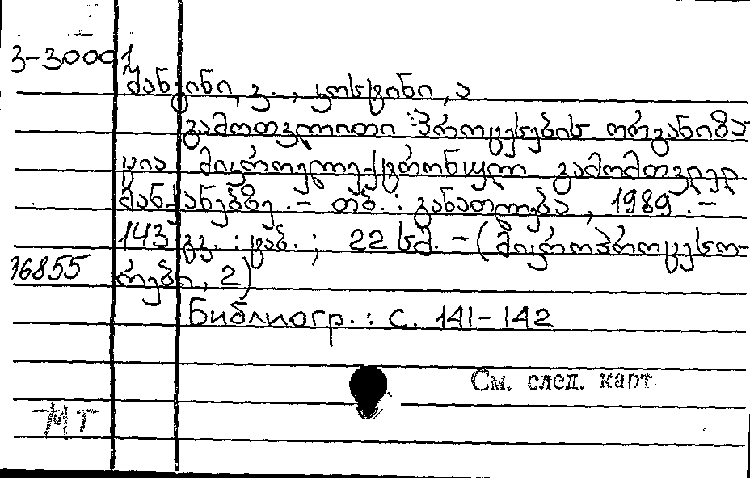 3-30001
შანგინი, ვ., კოსტინი, ა
გამოთვლითი პროცესების ორგანიზა
ცია მიკროელექტრონულ გამომთვლელ
მანქანებზე. – თბ.: განათლება, 1989. –
143 გვ.: ტაბ.; 22 სმ. – (მიკროპროცესო-
16855 რები, 2)
Библиогр.: с. 141-142
См. след. карт
МТ